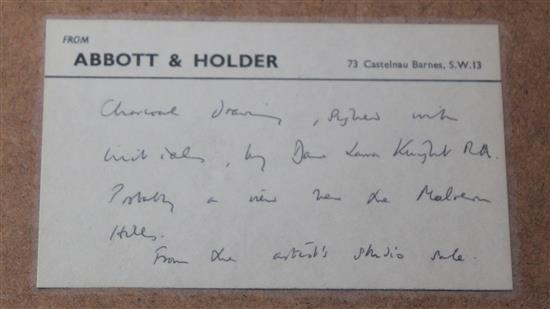 FROM
ABBOTT & HOLDER
73 Castelnau Barnes, S.W.13
Charcoal drawing, signed with
initials, by Dame Laura Knight R.A.
Probably a view near the Malvern
Hills.
From the artist's studio sale.